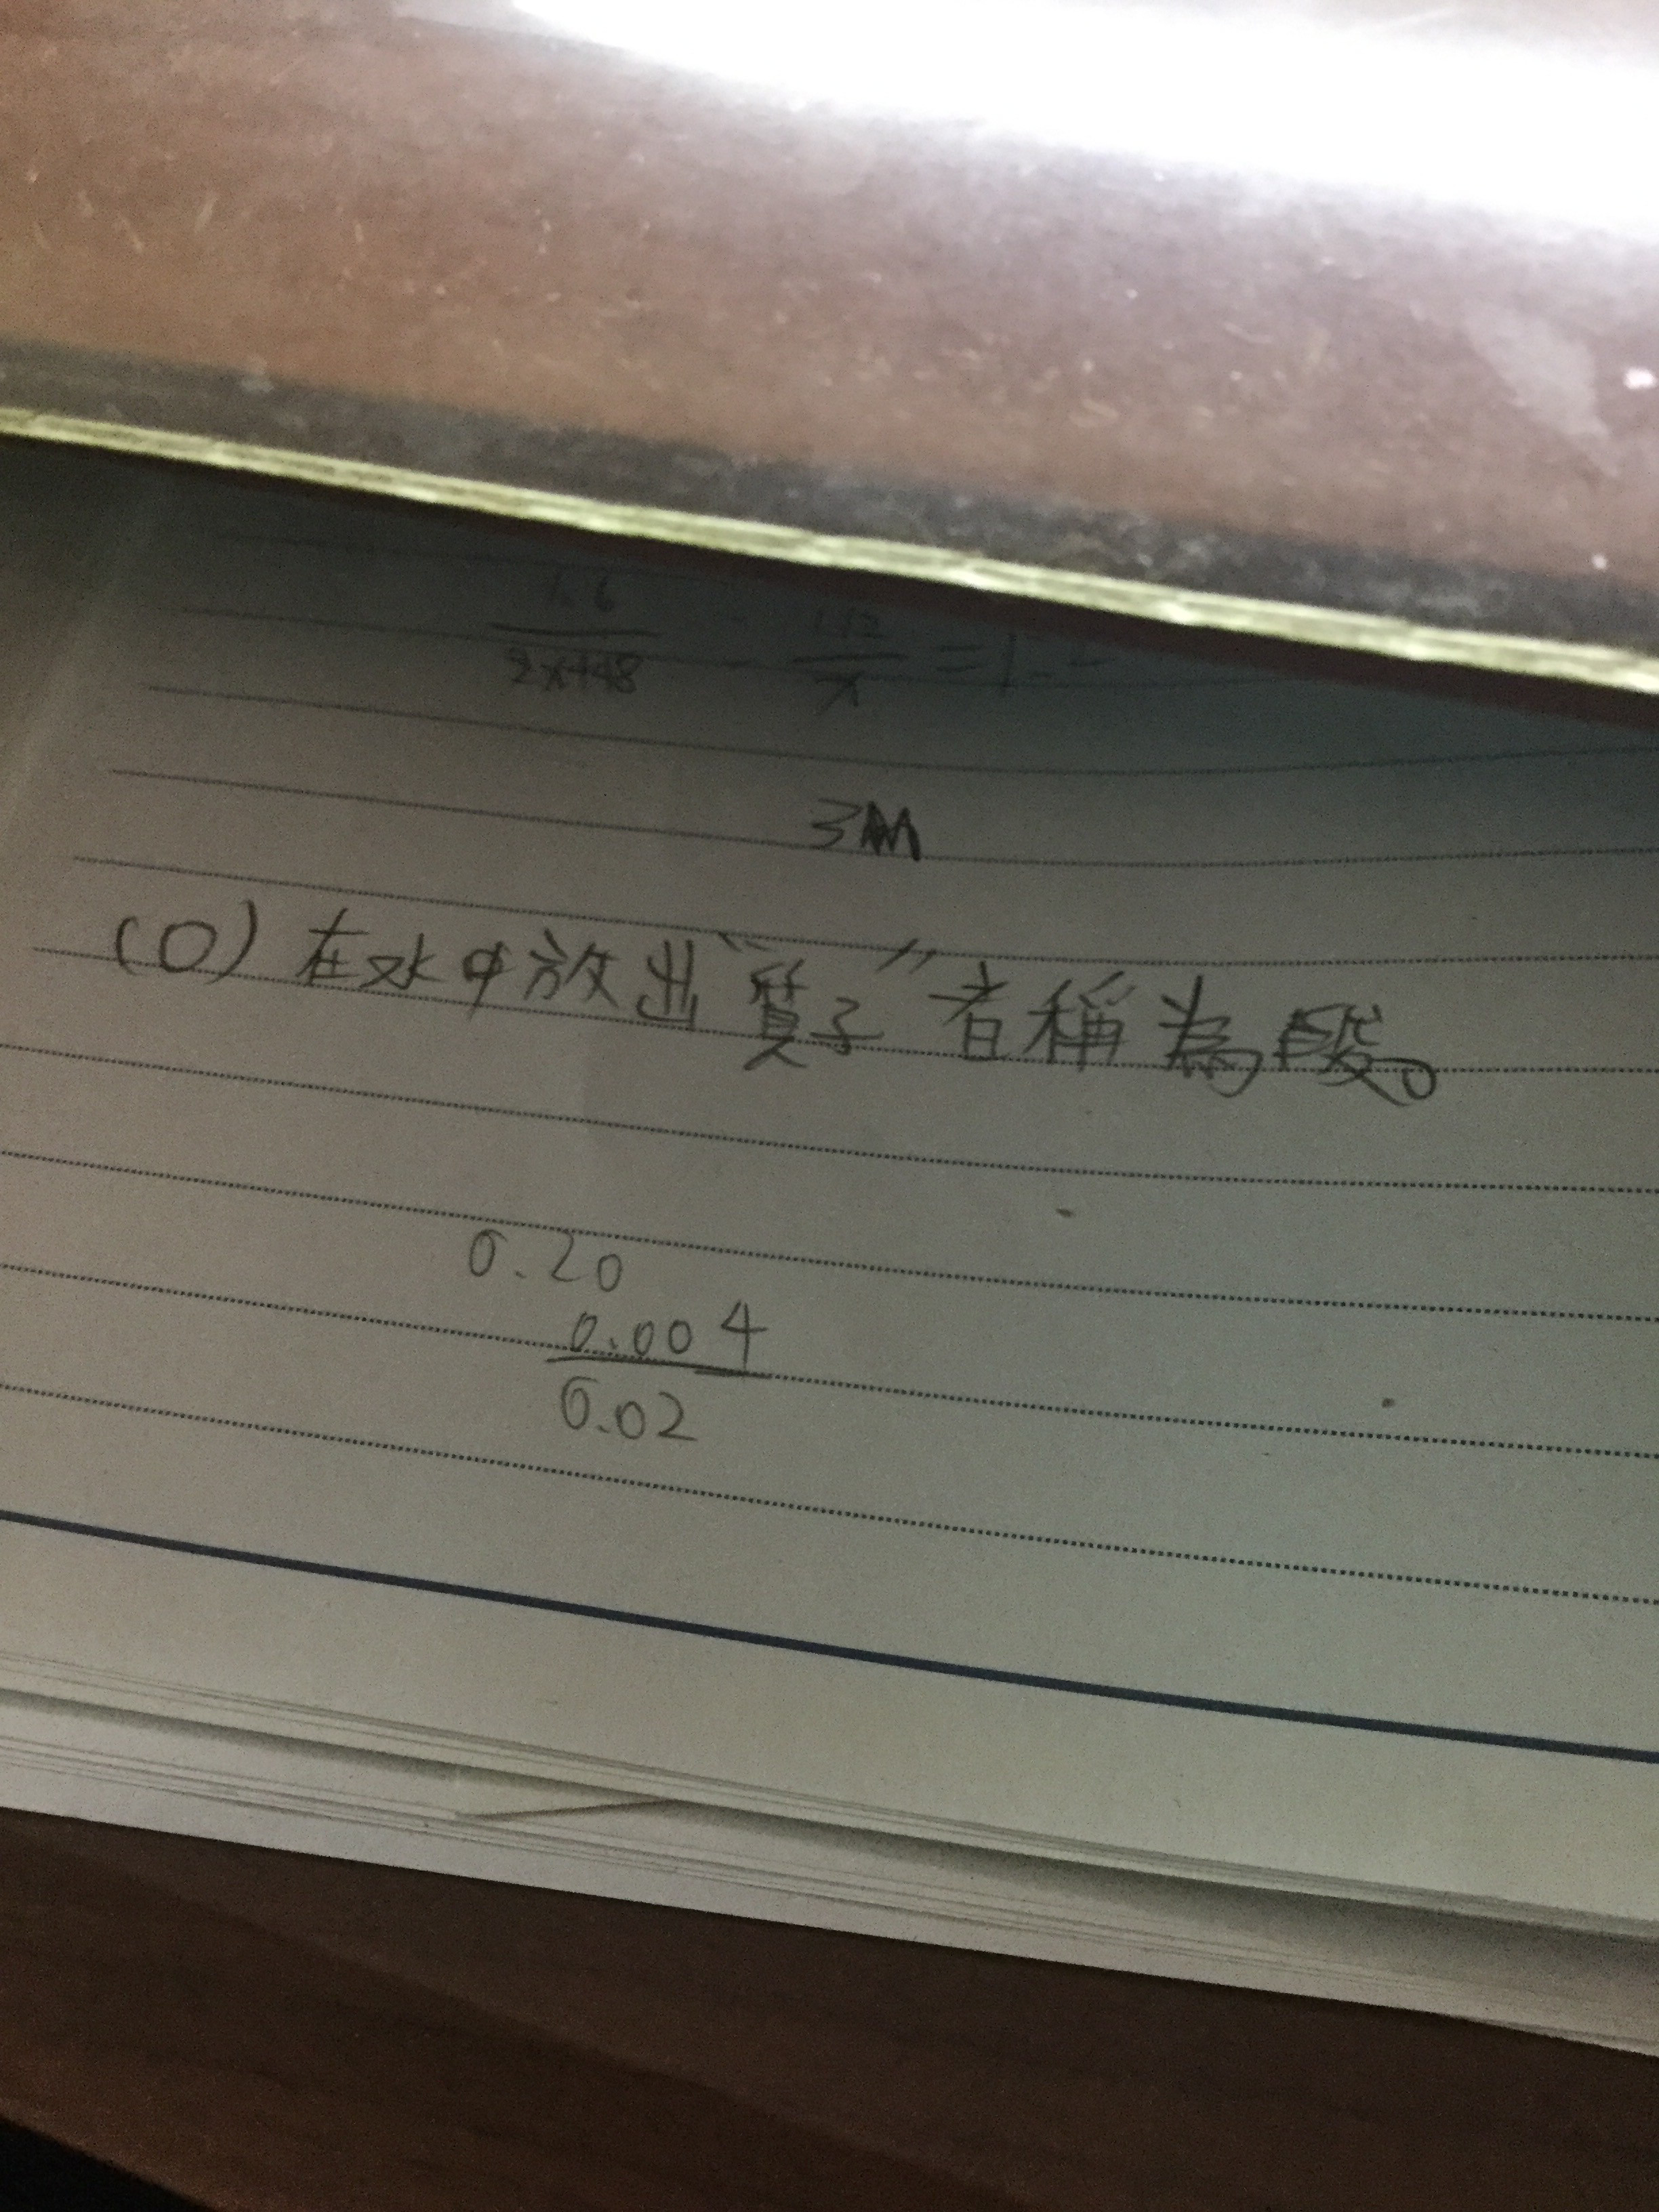 1.6
2x+48
x
3M
(O)在水中放出"質子"者稱為酸。
0.20
0.004
0.02